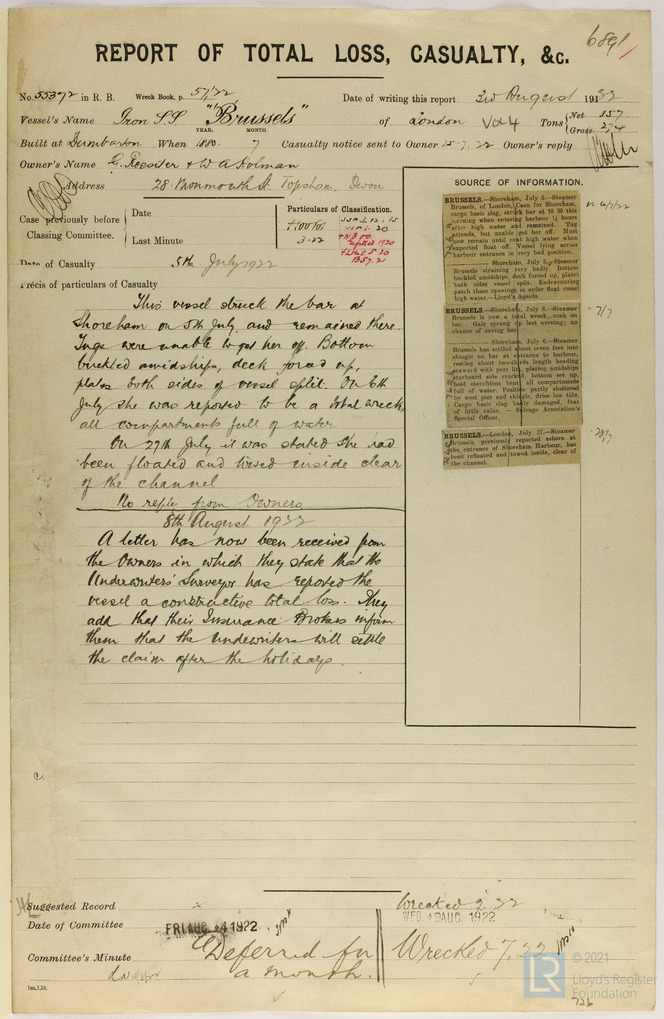 6891
REPORT OF TOTAL LOSS, CASUALTY, &c.
No. 55372 in R. B. Wreck Book, p. 57/22 Date of writing this report 3rd August 1922
Vessel's Name Iron S.S "Brussels" of London Vol 4 Tons Net 157 Gross 274
YEAR. MONTH.
Built at Dumbarton When 1880 7 Casualty notice sent to Owner 15.7.22 Owner's reply
Owner's Name & W A Holman
Address 28 Monmouth St. Topsham, Devon
Case previously before Classing Committee.
Date
Last Minute
Particulars of Classification.
+100 A1
3.22
Date of Casualty 5th July 1922
Précis of particulars of Casualty
This vessel struck the bar at
Shoreham on 5th July and remained there.
Tugs were unable to get her off. Bottom
buckled amidships, deck forced up,
plates both sides of vessel split. On 6th
July she was reported to be a total wreck,
all compartments full of water
On 27th July it was stated she had
been floated and towed inside clear
of the channel
No reply from Owners
8th August 1922
A letter has now been received from
the Owners in which they state that the
Underwriters' Surveyor has reported the
vessel a constructive total loss. They
add that their Insurance Brokers inform
them that the underwriters will settle
the claim after the holidays.
SOURCE OF INFORMATION.
BRUSSELS.—Shoreham, July 5.—Steamer
Brussels, of London, Caen for Shoreham,
cargo basic slag, struck bar at 10 30 this
morning when entering harbour 1½ hours
after high water and remained. Tug
attends, but unable get her off. Must
now remain until next high water when
expected float. Vessel lying across
harbour entrance in very bad position.
Shoreham, July 5.—Steamer
Brussels straining very badly. Bottom
buckled amidships, deck forced up, plates
both sides vessel split. Endeavouring
patch these openings in order float vessel
high water.—Lloyd's Agents.
6/7/22
BRUSSELS.—Shoreham, July 6.—Steamer
Brussels is now a total wreck, sunk on
bar. Gale sprang up last evening; no
chance of saving her.
7/7
Shoreham, July 6.—Steamer
Brussels has settled about seven feet into
shingle on bar at entrance to harbour,
resting about two-thirds length heading
inward with port list, plating amidships
starboard side cracked, bottom set up,
hold stanchions bent; all compartments
full of water. Position partly sheltered
by west pier and shingle, dries low tide.
Cargo basic slag badly damaged, fear
of little value. — Salvage Association's
Special Officer.
BRUSSELS.—London, July 27.—Steamer
Brussels, previously reported ashore at
the entrance of Shoreham Harbour, has
been refloated and towed inside, clear of
the channel.
28/7
Suggested Record Wrecked 7.22
Date of Committee FRI AUG 4 1922 WED 9 AUG. 1922
Committee's Minute Deferred for
a month.
Wrecked 7.22
1m,1,18.
726
LR
© 2021
Lloyd's Register
Foundation